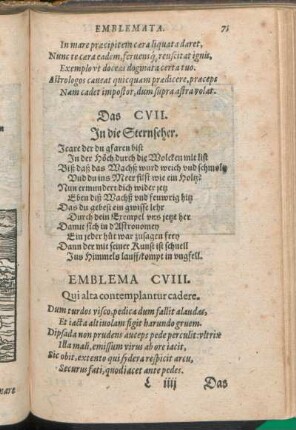 EMBLEMATA. 71
In mare præcipitem cæra liquata daret,
Nunc te cæra eadem, feruensq́; resuscitat ignis,
Exemplo vt doceas dogmata certa tuo.
Astrologus caueat quicquam prædicere, præceps
Nam cadet impostor, dum supra astra volat.
Das CVII.
In die Sternseher.
Icare der du gfaren bist
In der Höch durch die Wolcken mit list
Biß daß das Wachß wurd weich vnd schmoltz
Vnd du ins Meer fielst wie ein Holtz
Nun ermundert dich wider jetz
Eben diß Wachß vnd feuwrig hitz
Das du gebest ein gwisse lehr
Durch dein Exempel vns jetzt her
Damit sich in Astronomey
Ein jeder hüt war zusagen frey
Dann der mit seiner Kunst ist schnell
Ins Himmels lauff kompt in vngfell.
EMBLEMA CVIII.
Qui alta contemplantur cadere.
Dum turdos visco, pedica dum fallit alaudas,
Et iacta altiuolam figit harundo gruem.
Dipsada non prudens auceps pede perculit: vltrix
Illa mali, emissum virus ab ore iacit.
Sic obit, extento qui sydera respicit arcu,
Securus fati, quod iacet ante pedes.
L iiij Das